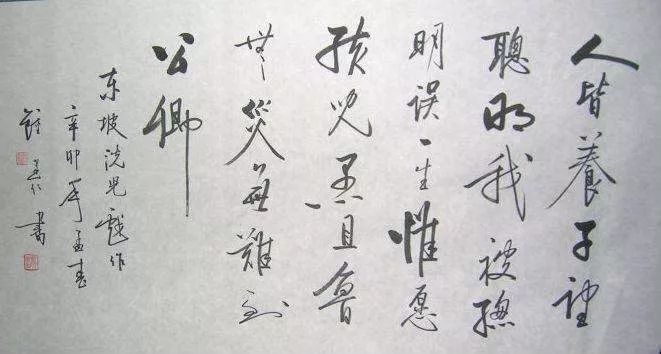 人皆養子望
聰明我被聰
明误一生惟愿
孩児愚且魯
無災無難到
公卿
东坡洗児戲作
辛卯年孟春
書